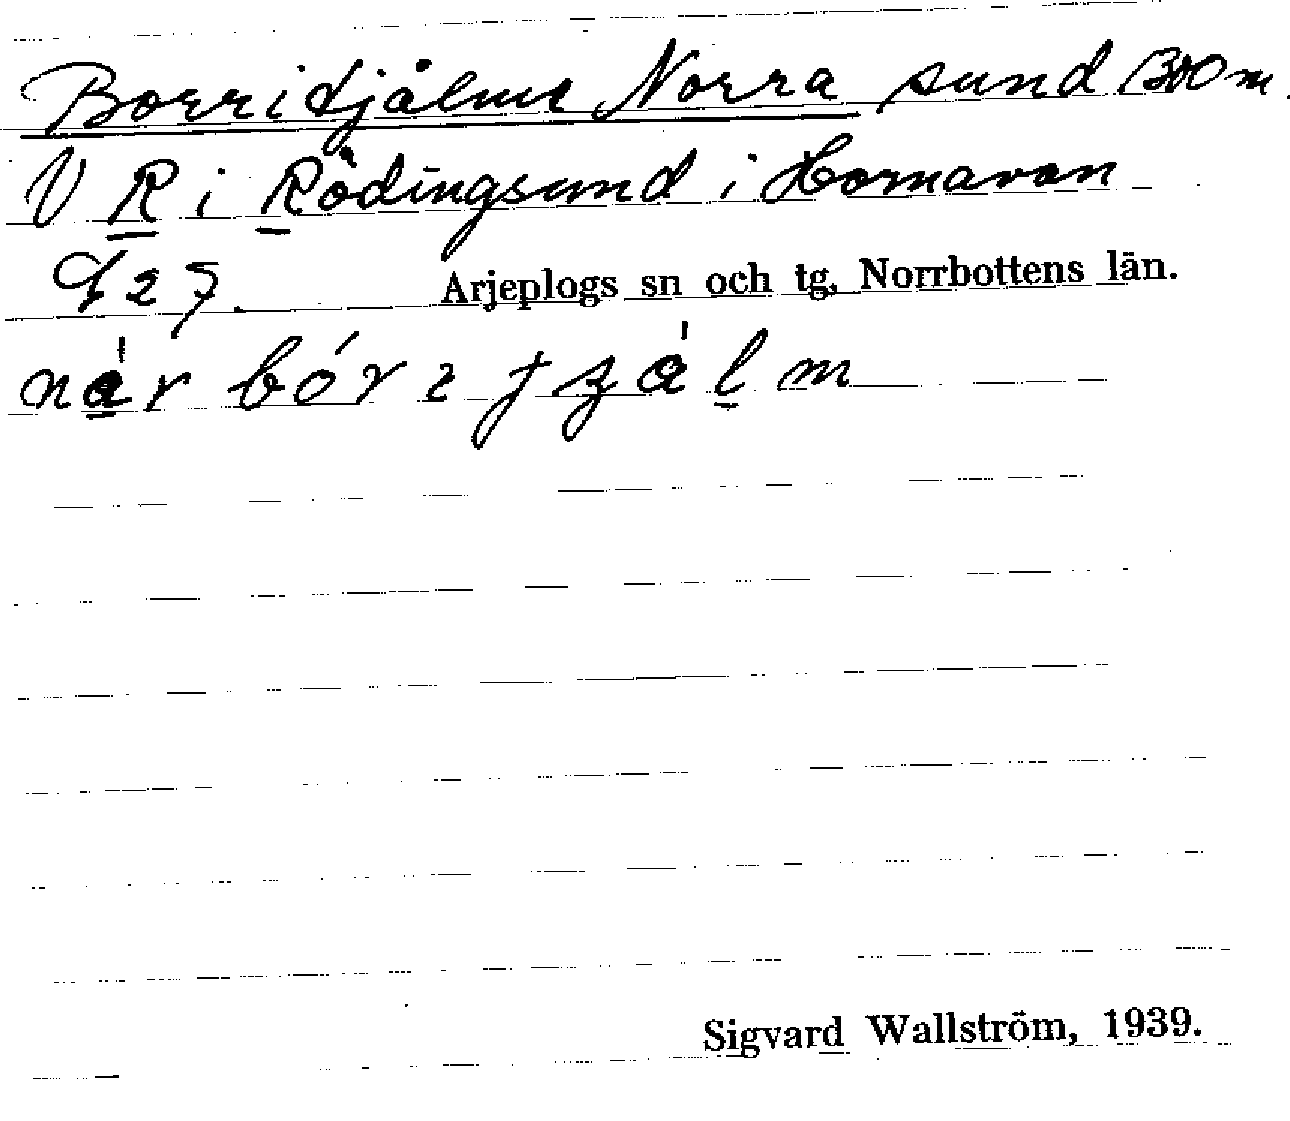 Borridjålme Norra sund 300 m
V R i Rödingsund i Hornavan
927. Arjeplogs sn och tg, Norrbottens län.
Sigvard Wallström, 1939.